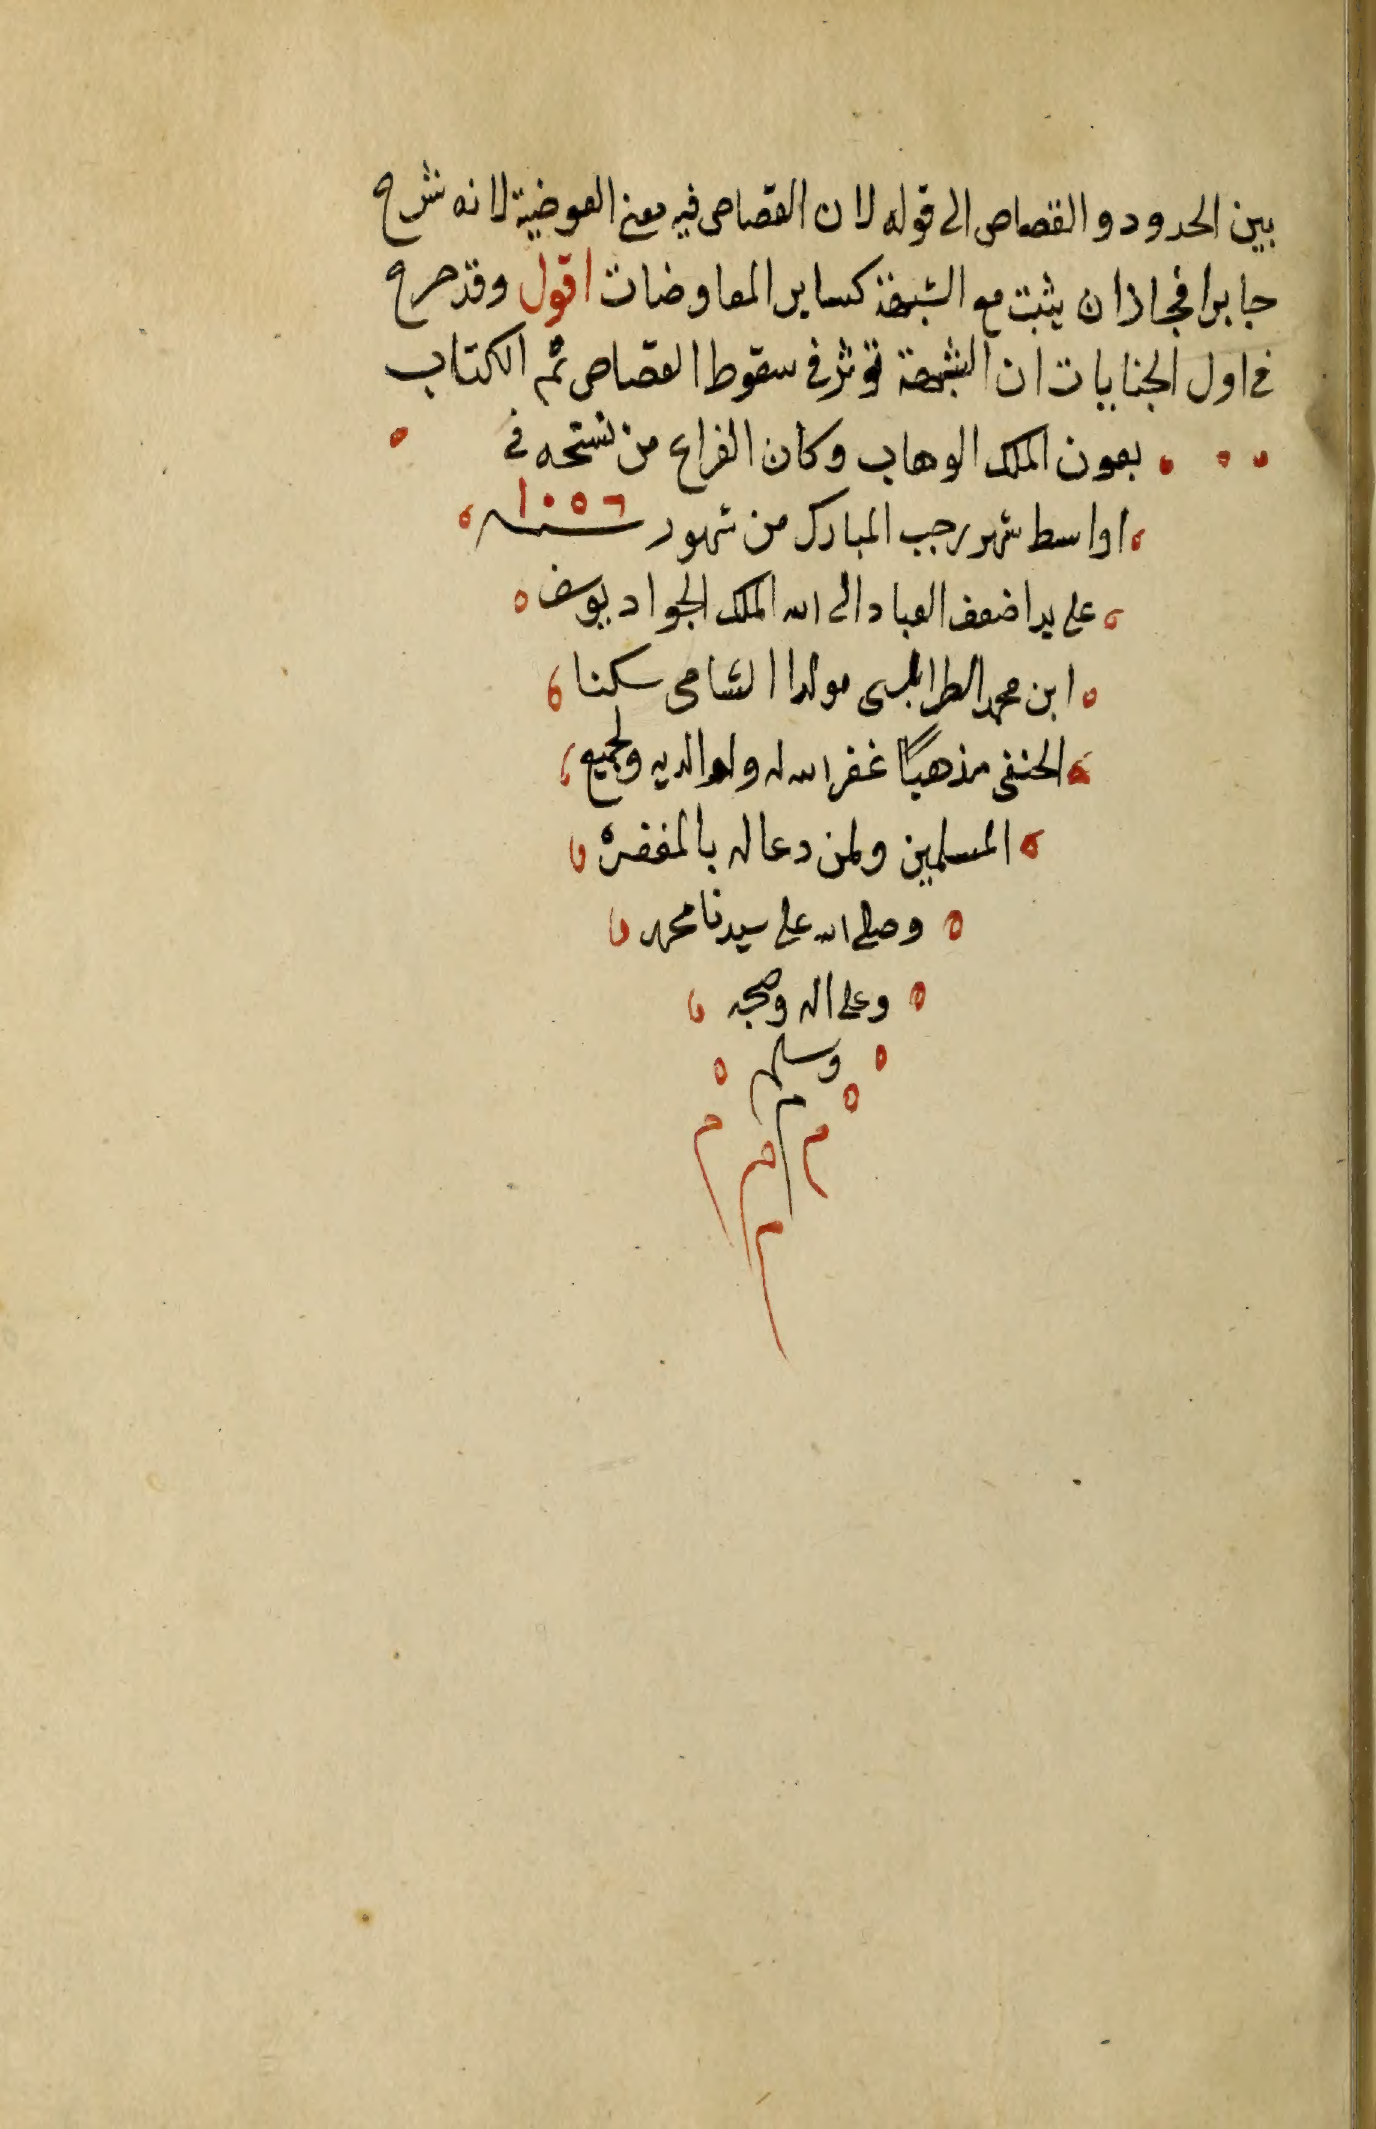 بين الحدود والقصاص الى قوله لان القصاص فيه معنى العوضية لانه شرع
جابرا فجاز ان يثبت مع الشبهة كساير المعاوضات اقول وقد صرح
فى اول الجنايات ان الشبهة تؤثر فى سقوط القصاص تم الكتاب
بعون الملك الوهاب وكان الفراغ من نسخه فى
اواسط شهر رجب المبارك من شهور سنه ١٠٥٦
على يد اضعف العباد الى الله الملك الجواد يوسف
ابن محمد الطرابلسى مولدا الشامى سكنا
الحنفى مذهبًا غفر الله له ولوالديه ولجميع
المسلمين ولمن دعا له بالمغفرة
وصلى الله على سيدنا محمد
وعلى اله وصحبه
وسلم
م م
م م
م